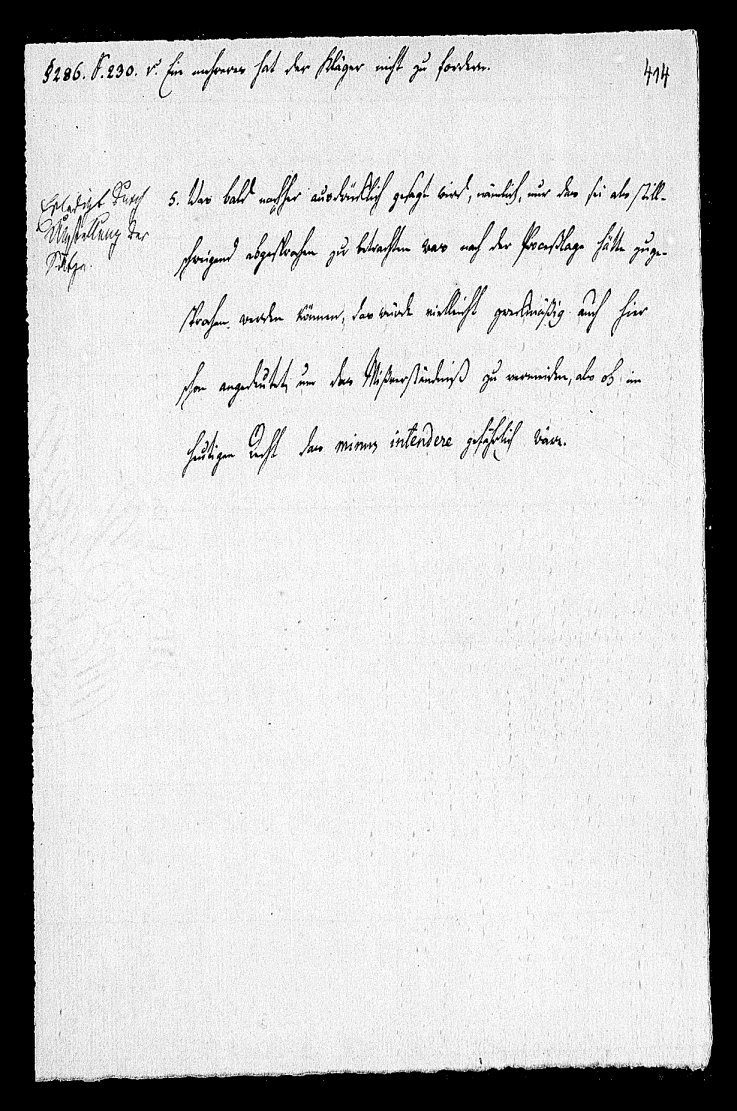 §286. S. 230. v. Ein mehreres hat der Kläger nicht zu fordern.
414
Erledigt durch
Umstellung der
Sätze.
5. Was bald nachher ausdrücklich gesagt wird, nämlich, nur das sei als still-
schweigend abgesprochen zu betrachten was nach der Proceßlage hätte zuge-
sprochen werden können, das würde vielleicht zweckmäßig auch hier
schon angedeutet, um das Mißverständniß zu vermeiden, als ob im
heutigen Recht das minus intendere gefährlich wäre.